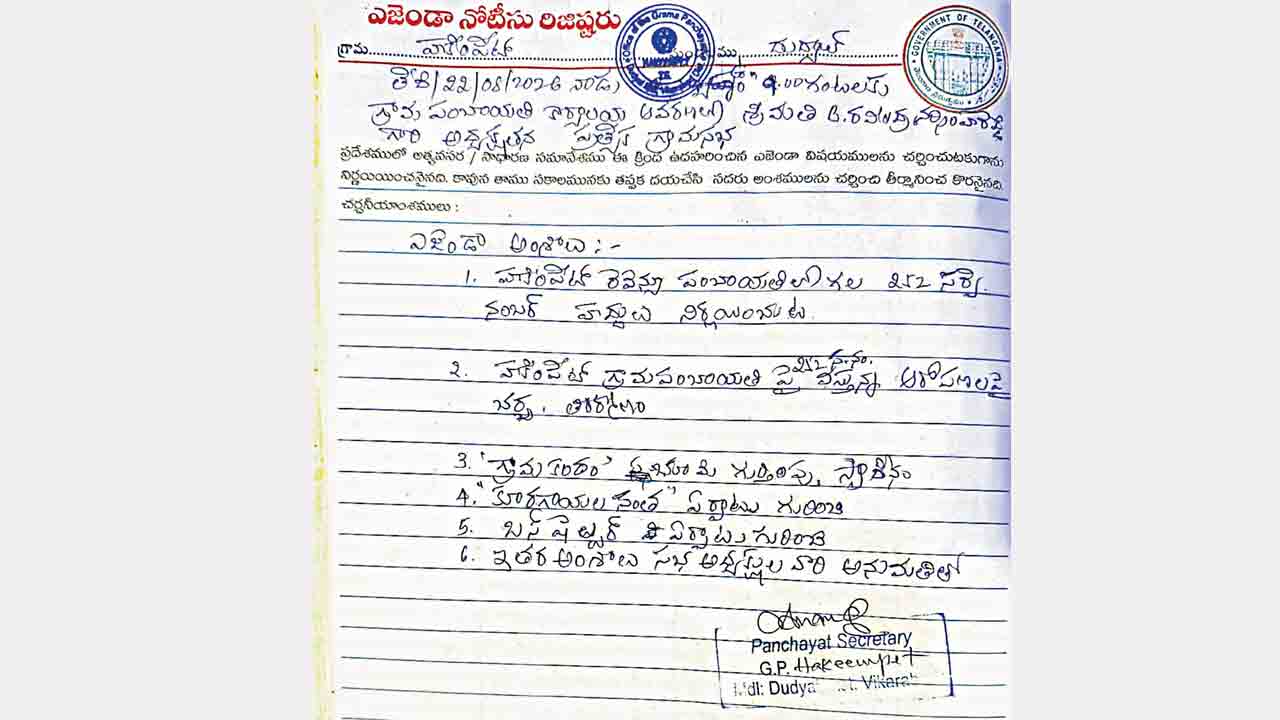 ఎజెండా నోటీసు రిజిష్టరు
గ్రామ హకీంపేట్ దుద్యాల్
తేది/22/08/2026 నాడు 9.00 గంటలకు
గ్రామ పంచాయతి కార్యాలయ ఆవరణలో శ్రీమతి
గారి అధ్యక్షతన ప్రత్యేక గ్రామసభ
ప్రదేశములో అత్యవసర / సాధారణ సమావేశము ఈ క్రింద ఉదహరించిన ఎజెండా విషయములను చర్చించుటకుగాను
నిర్ణయించనైనది. కావున తాము సకాలమునకు తప్పక దయచేసి సదరు అంశములను చర్చించి తీర్మానించ కోరనైనది.
చర్చనీయాంశములు :
ఎజెండా అంశాలు :-
1. హకీంపేట్ రెవెన్యూ పంచాయతిలో గల 252 సర్వే
నంబర్ హద్దులు నిర్ణయించుట.
252 స.నం.
2. హకీంపేట్ గ్రామపంచాయతి పై వేస్తున్న ఆరోపణలపై
చర్చ, తీర్మాణం
3. 'గ్రామకంఠం' భూమి గుర్తింపు, స్వాధీనం
4. "కూరగాయల సంత" ఏర్పాటు గురించి
5. బస్ షెల్టర్ ఏర్పాటు గురించి
6. ఇతర అంశాలు సభ అధ్యక్షుల వారి అనుమతితో
Panchayat Secretary
G.P. Hakeempet
Mdl: Dudya
GOVERNMENT OF TELANGANA
Office of the Grama Panchayat